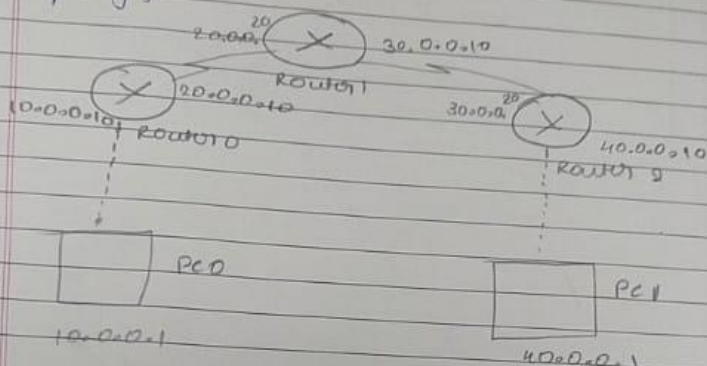 20.0.0.20
30.0.0.10
Router1
10.0.0.10
20.0.0.10
Router0
30.0.0.20
40.0.0.10
Router 2
PC0
PC1
10.0.0.1
40.0.0.1